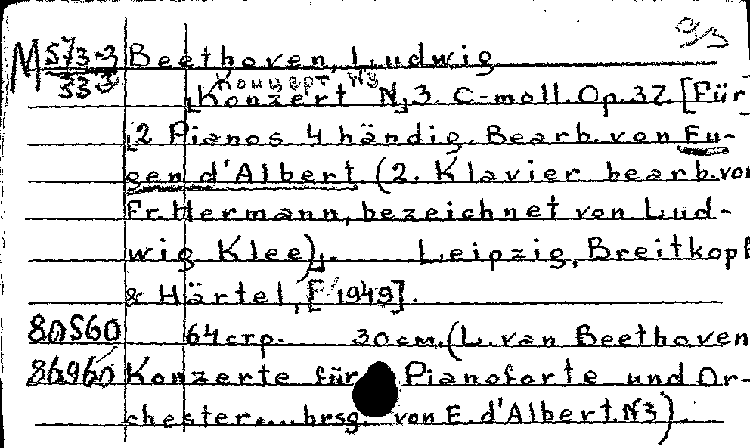 M 573-3 Beethoven, Ludwig
333
Концерт №3
[Konzert N]3. C-moll. Op. 37. [Für
[2 Pianos 4 händig. Bearb. von Eu-
gen d'Albert. (2. Klavier bearb. von
Fr. Hermann, bezeichnet von Lud-
wig Klee)]. Leipzig, Breitkopf
& Härtel, [1949].
80560 64 стр. 30 см. (L. van Beethoven
86960 Konzerte für Pianoforte und Or-
chester... hrsg. von E. d'Albert. N3).